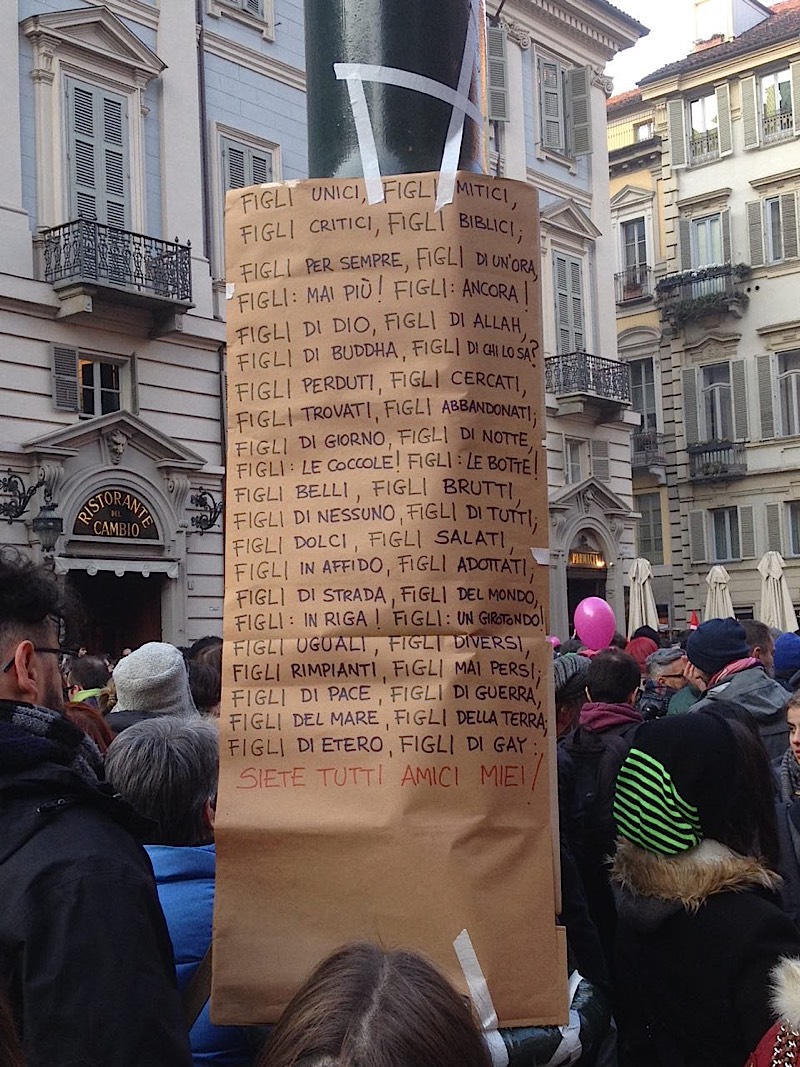 FIGLI UNICI, FIGLI MITICI,
FIGLI CRITICI, FIGLI BIBLICI;
FIGLI PER SEMPRE, FIGLI DI UN'ORA,
FIGLI: MAI PIÙ! FIGLI: ANCORA!
FIGLI DI DIO, FIGLI DI ALLAH,
FIGLI DI BUDDHA, FIGLI DI CHI LO SA?
FIGLI PERDUTI, FIGLI CERCATI,
FIGLI TROVATI, FIGLI ABBANDONATI;
FIGLI DI GIORNO, FIGLI DI NOTTE,
FIGLI: LE COCCOLE! FIGLI: LE BOTTE!
FIGLI BELLI, FIGLI BRUTTI,
FIGLI DI NESSUNO, FIGLI DI TUTTI;
FIGLI DOLCI, FIGLI SALATI,
FIGLI IN AFFIDO, FIGLI ADOTTATI;
FIGLI DI STRADA, FIGLI DEL MONDO,
FIGLI: IN RIGA! FIGLI: UN GIROTONDO!
FIGLI UGUALI, FIGLI DIVERSI,
FIGLI RIMPIANTI, FIGLI MAI PERSI;
FIGLI DI PACE, FIGLI DI GUERRA,
FIGLI DEL MARE, FIGLI DELLA TERRA;
FIGLI DI ETERO, FIGLI DI GAY:
SIETE TUTTI AMICI MIEI!
RISTORANTE
DEL
CAMBIO
FARMACIA